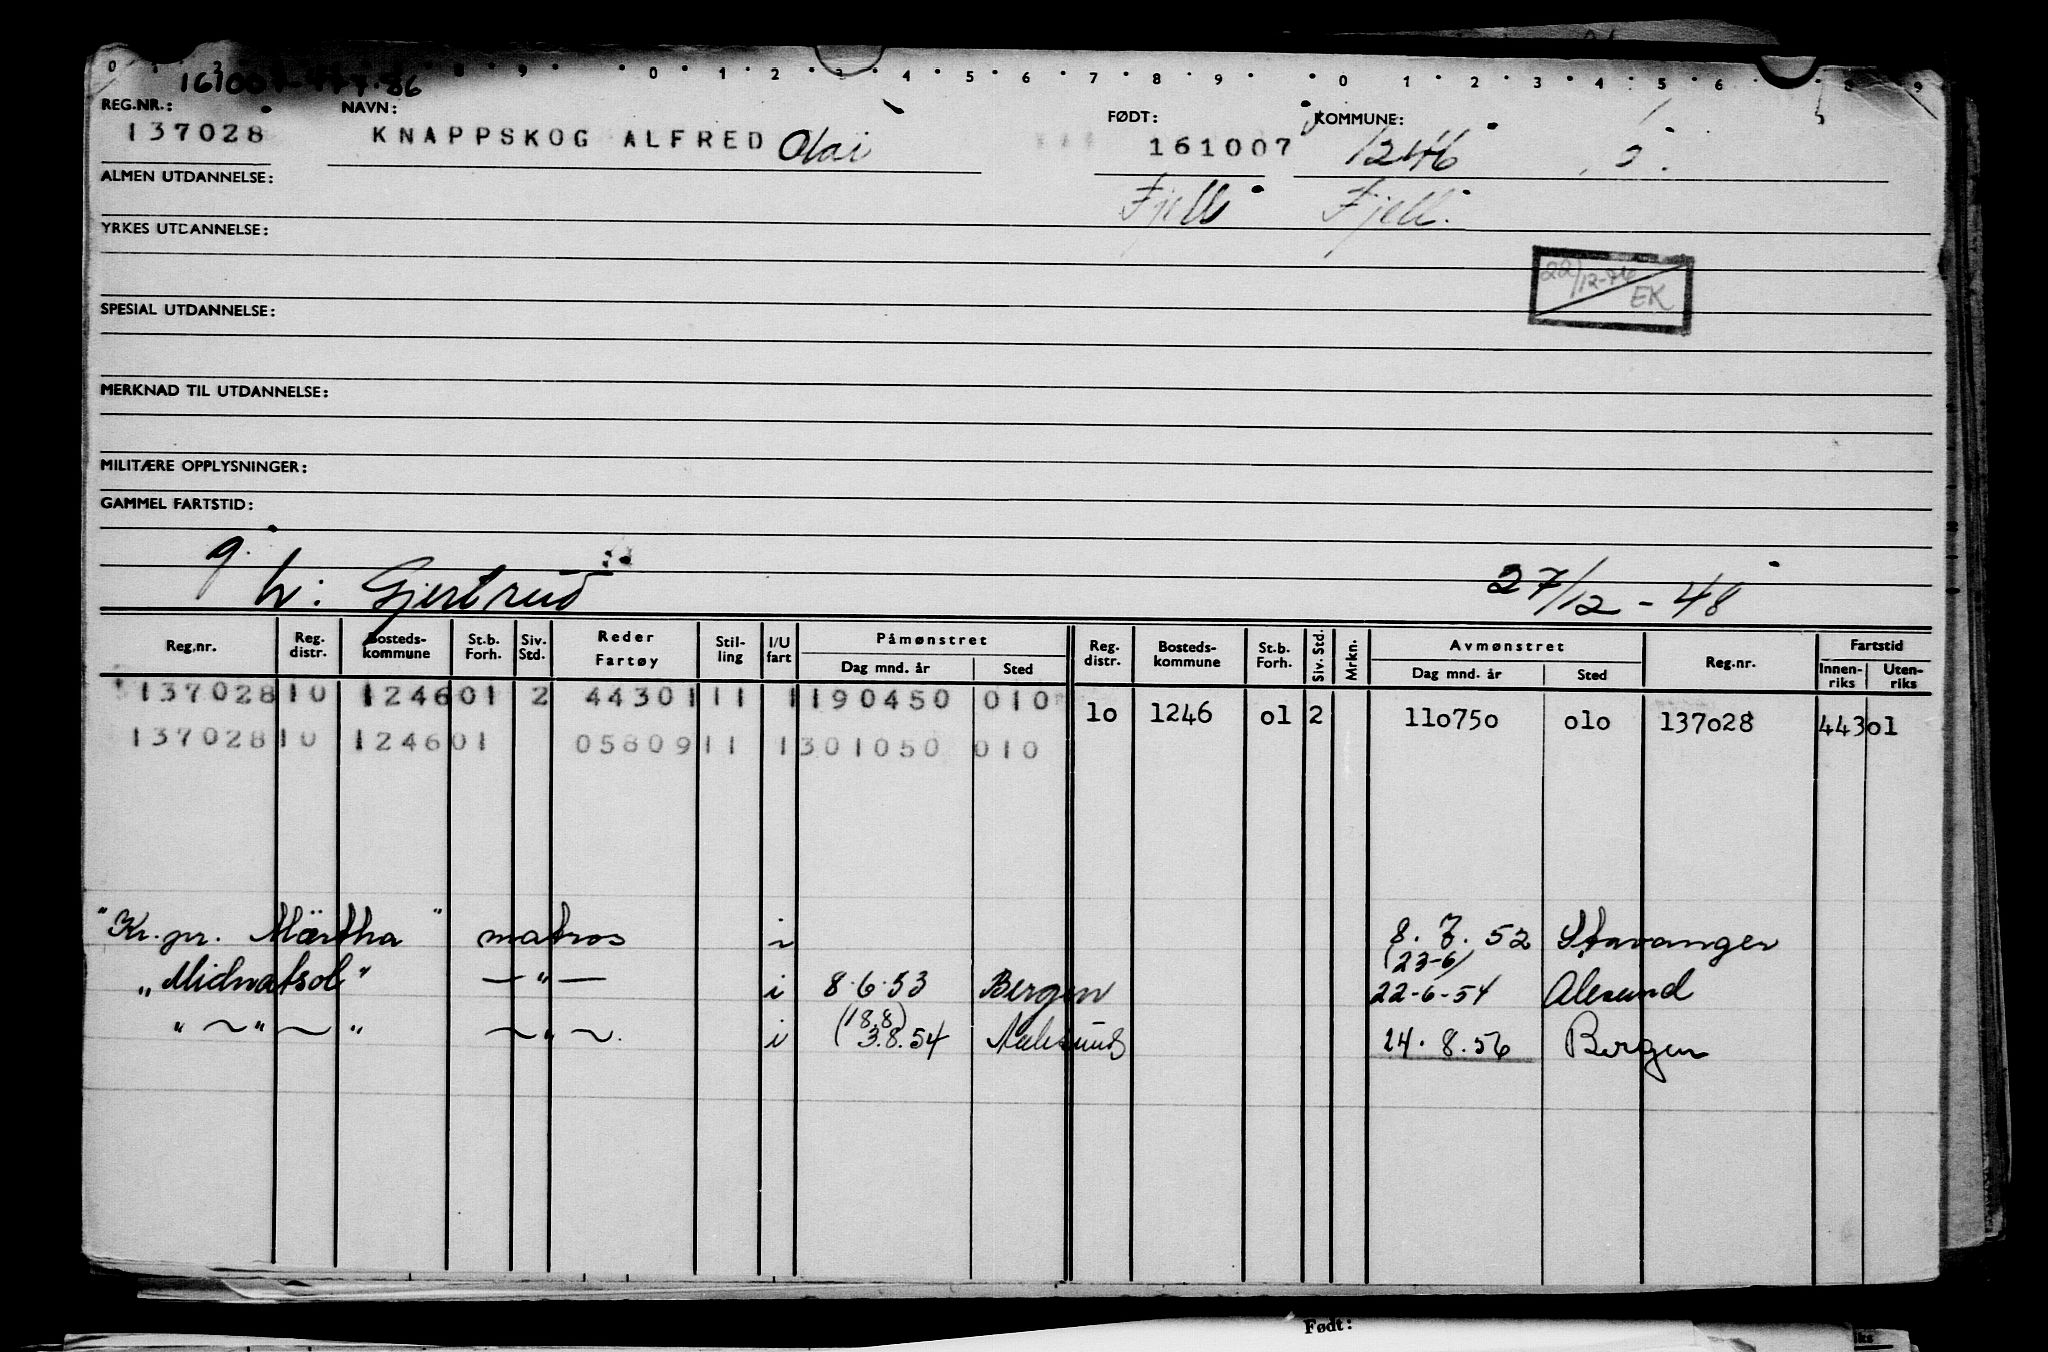 0 8 9 0 1 2 3 4 5 6 7 8 9 0 1 2 3 4 5 6 8 9
REG.NR.: NAVN: FØDT: KOMMUNE:
137028 KNAPPSKOG ALFRED Olai 161007 1246
ALMEN UTDANNELSE: Fjell Fjell.
YRKES UTDANNELSE:
22/12-76 EK
SPESIAL UTDANNELSE:
MERKNAD TIL UTDANNELSE:
MILITÆRE OPPLYSNINGER:
GAMMEL FARTSTID:
g.
h: Gjertrud 27/12-48
Reg.nr. Reg. distr. Bosteds-kommune St.b. Forh. Siv. Std. Reder Fartøy Stil-ling I/U fart Påmønstret Dag mnd. år Sted Reg. distr. Bosteds-kommune St.b. Forh. Siv. Std. Mrkn. Avmønstret Dag mnd. år Sted Reg.nr. Fartstid Innen-riks Uten-riks
137028 10 1246 01 2 44301 11 1 190450 010 10 1246 01 2 110750 010 137028 44301
137028 10 1246 01 05809 11 1 301050 010
"Kr. pr. Märtha" matros i 8.7.52 Stavanger
(23-6)
"Midnatsol" — " — i 8.6.53 Bergen 22-6-54 Alesund
(18.8)
" ~ " ~ " ~ " ~. i 3.8.54 Aalesund 14.8.56 Bergen
Født: